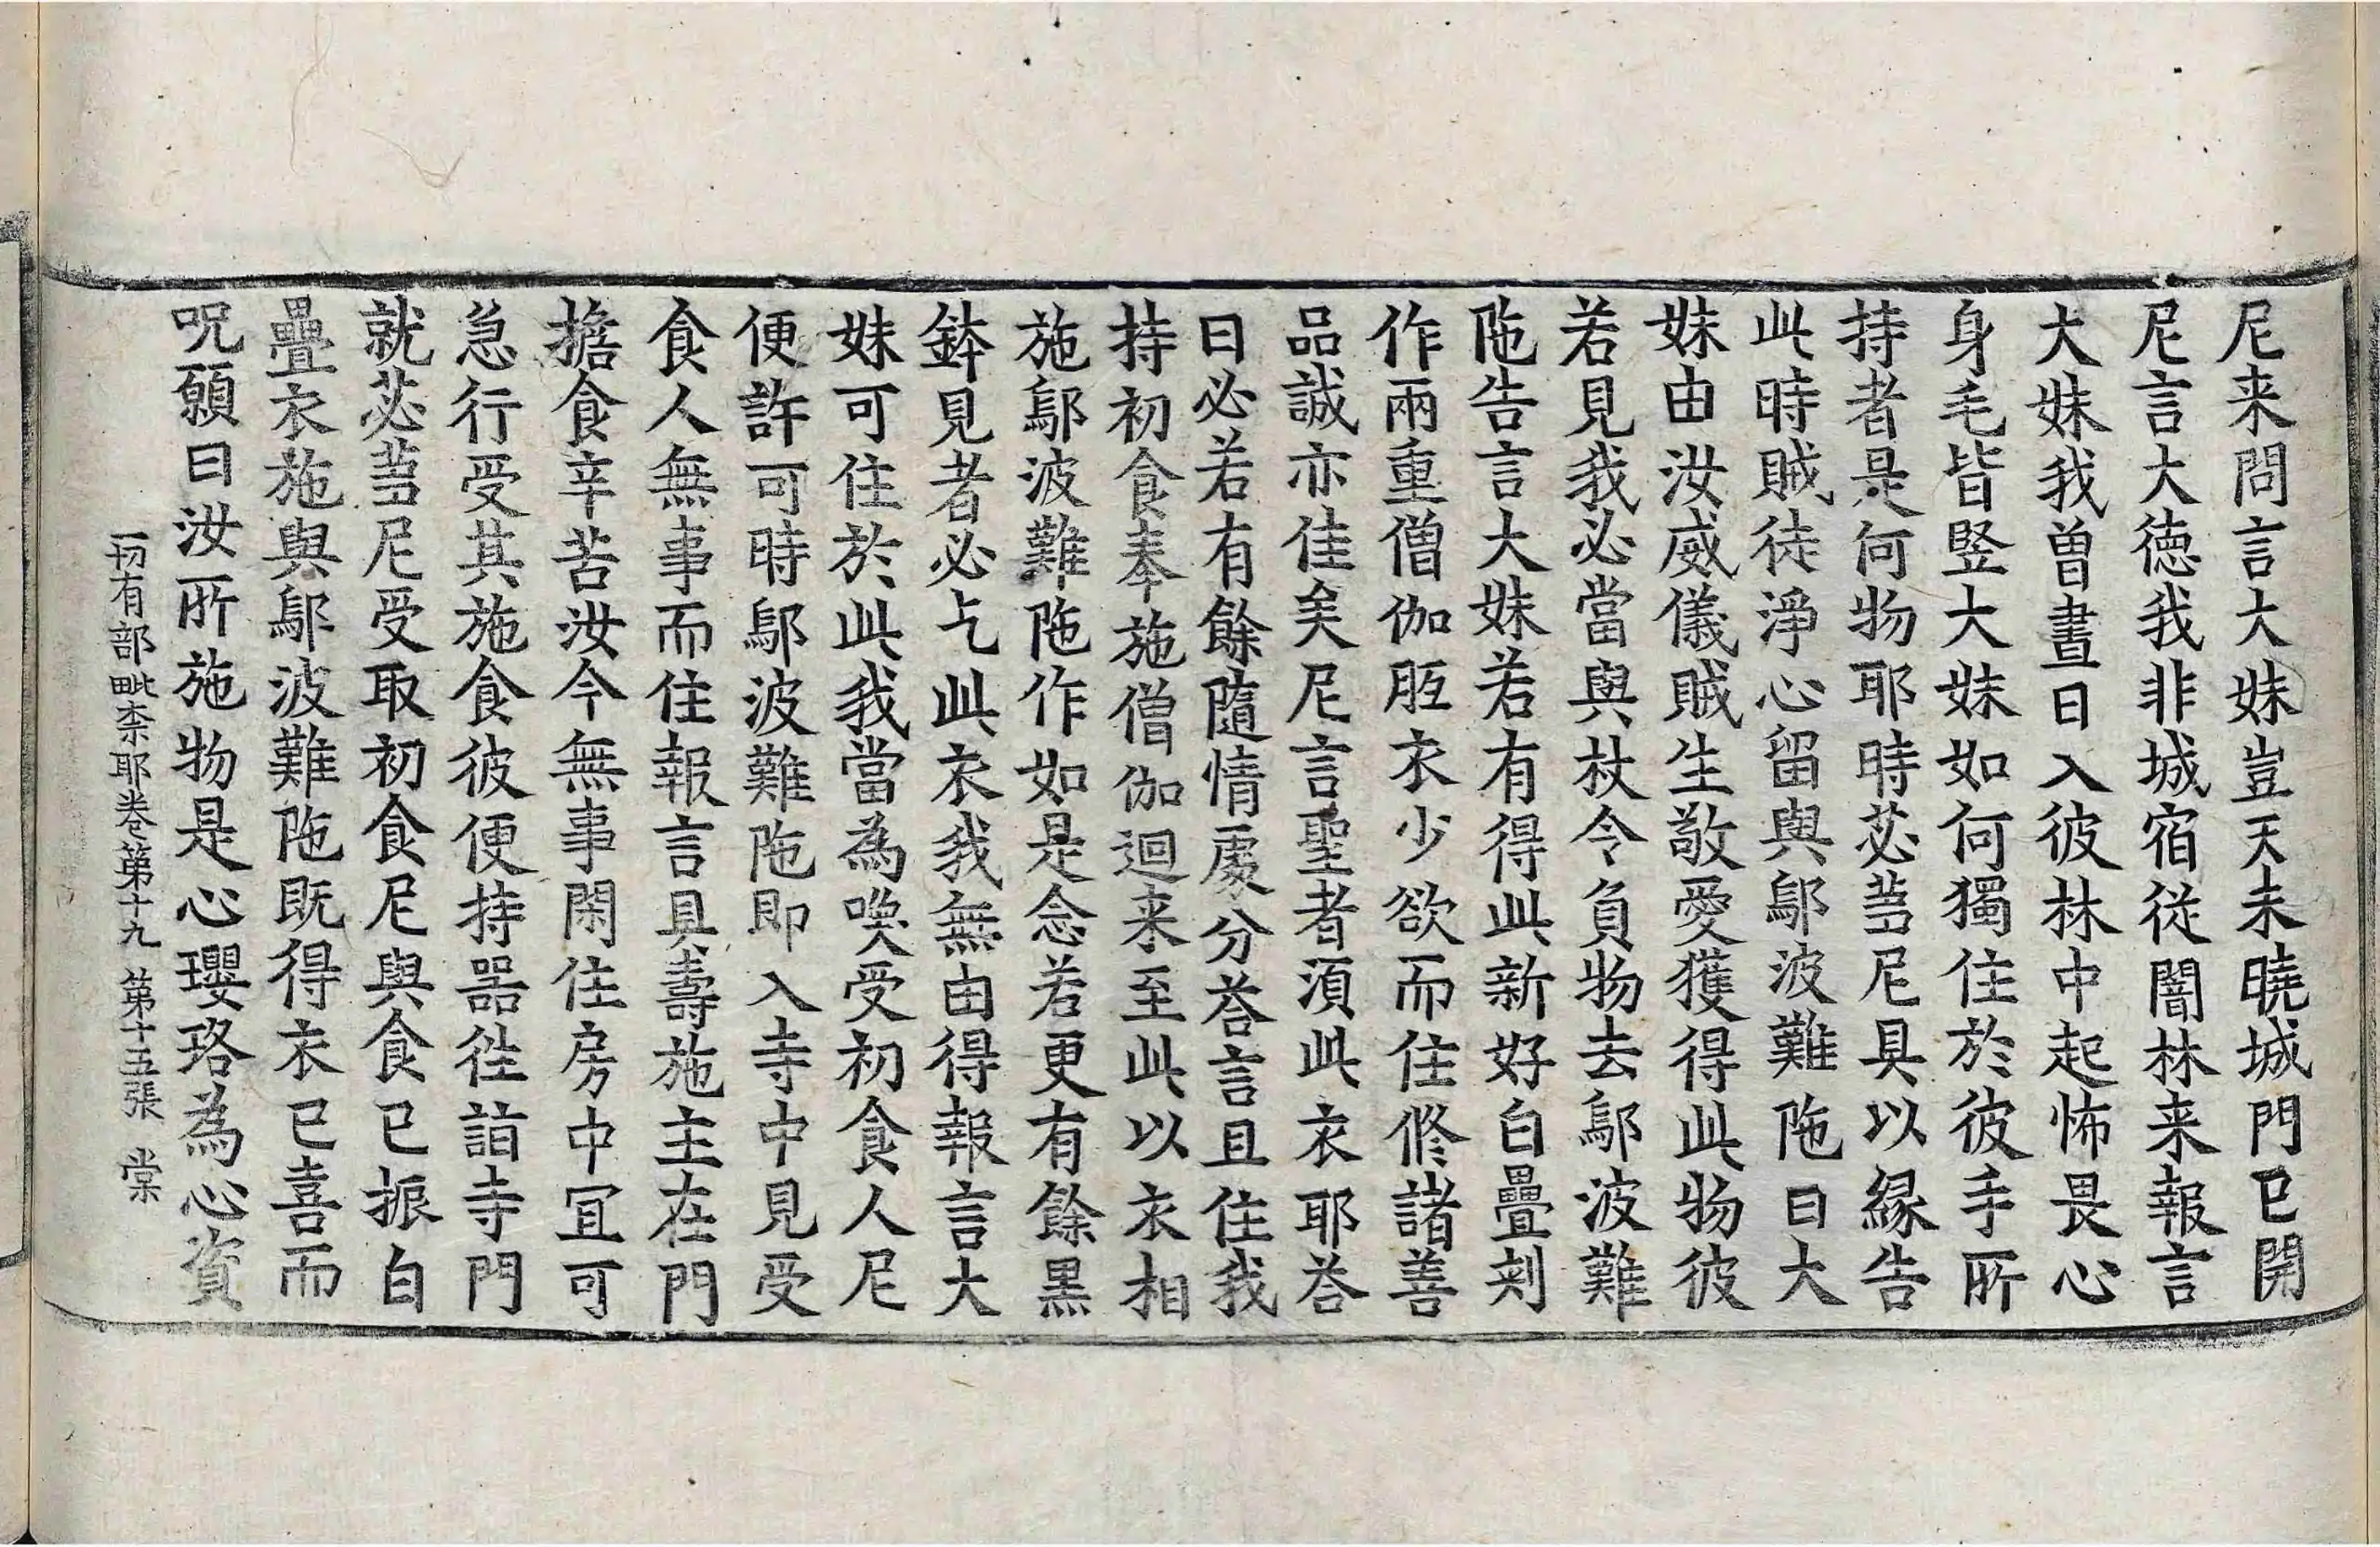 尼来問言大妹豈天未曉城門已開
尼言大德我非城宿從闇林来報言
大妹我曾晝日入彼林中起怖畏心
身毛皆竪大妹如何獨住於彼手所
持者是何物耶時苾芻尼具以縁告
此時賊徒淨心留與鄔波難陁曰大
妹由汝威儀賊生敬愛獲得此物彼
若見我必當與杖令負物去鄔波難
陁告言大妹若有得此新好白疊刾
作兩重僧伽胝衣少欲而住修諸善
品誠亦佳矣尼言聖者須此衣耶荅
曰必若有餘隨情處分荅言且住我
持初食奉施僧伽迴来至此以衣相
施鄔波難陁作如是念若更有餘黑
鉢見者必乞此衣我無由得報言大
妹可住於此我當為喚受初食人尼
便許可時鄔波難陁即入寺中見受
食人無事而住報言具壽施主在門
擔食辛苦汝今無事閑住房中冝可
急行受其施食彼便持器徃詣寺門
就苾芻尼受取初食尼與食已振白
疊衣施與鄔波難陁既得衣已喜而
呪願曰汝所施物是心瓔珞為心資
一切有部毗柰耶卷第十九 第十五張 棠